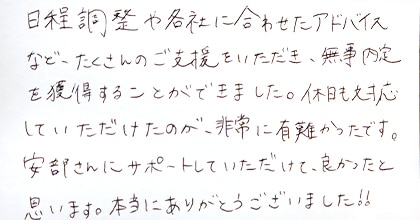 日程調整や各社に合わせたアドバイス
など、たくさんのご支援をいただき、無事内定
を獲得することができました。休日も対応
していただけたのが、非常に有難かったです。
安部さんにサポートしていただけて、良かったと
思います。本当にありがとうございました!!